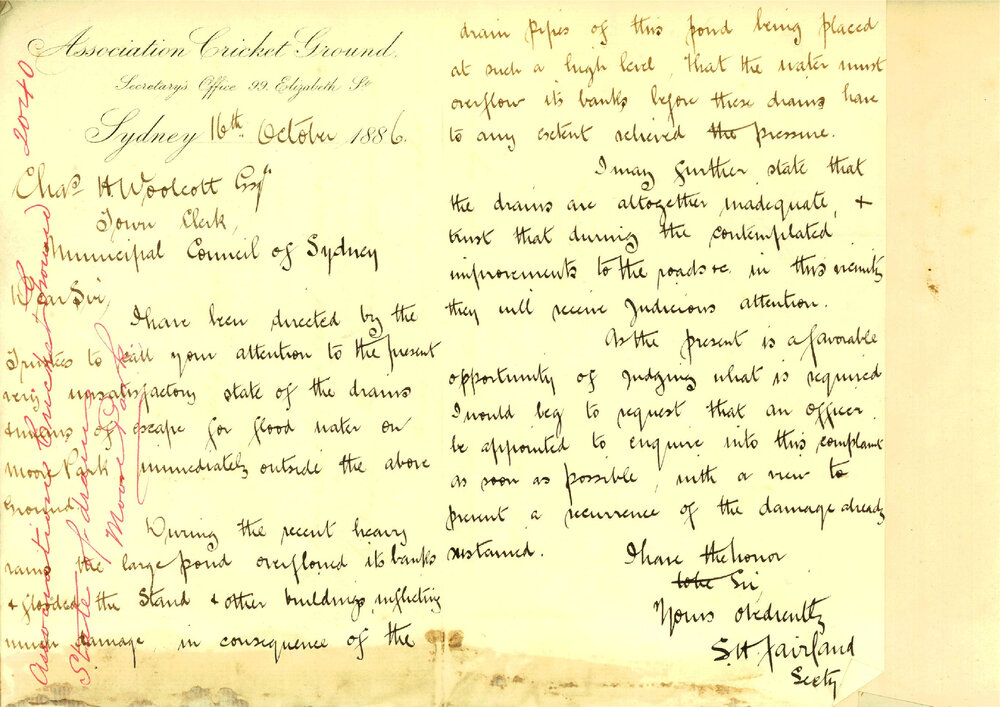 Association Cricket Ground.
Secretary's Office 99. Elizabeth St
Sydney 16th October 1886.
Chas H Woolcott Esqr
Town Clerk,
Municipal Council of Sydney
Dear Sir,
I have been directed by the
Trustees to call your attention to the present
very unsatisfactory state of the drains
& means of escape for flood water on
Moore Park immediately outside the above
Ground.
During the recent heavy
rains the large pond overflowed its banks
& flooded the Stand & other buildings, inflicting
much damage, in consequence of the
drain pipes of this pond being placed
at such a high level, that the water must
overflow its banks before these drains have
to any extent relieved the pressure.
I may further state that
the drains are altogether inadequate, &
trust that during the contemplated
improvements to the roads &c. in this vicinity
they will receive judicious attention.
As the present is a favorable
opportunity of judging what is required
I would beg to request that an officer
be appointed to enquire into this complaint
as soon as possible, with a view to
prevent a recurrence of the damage already
sustained.
I have the honor
to be Sir,
Yours obediently
S H Fairland
Secty
2040
Association Cricket Ground
State of drains
Moore Park